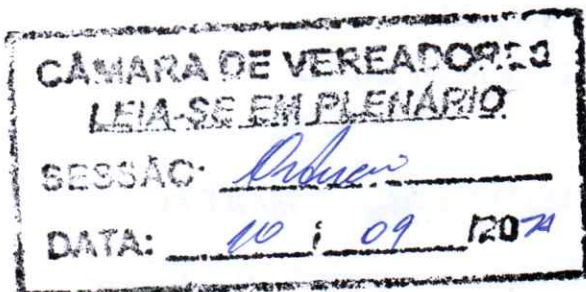 CÂMARA DE VEREADORES
LEIA-SE EM PLENÁRIO
SESSÃO:
DATA: 10 / 09 /20